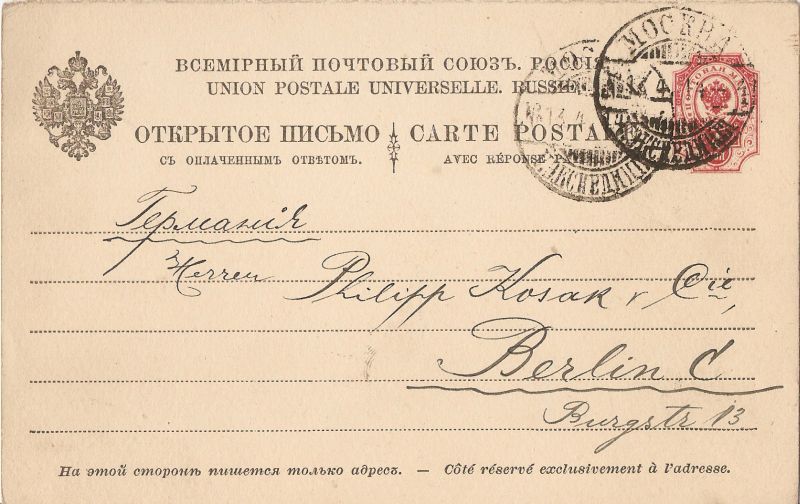 ВСЕМІРНЫЙ ПОЧТОВЫЙ СОЮЗЪ. РОССІЯ
UNION POSTALE UNIVERSELLE. RUSSIE
ОТКРЫТОЕ ПИСЬМО
СЪ ОПЛАЧЕННЫМЪ ОТВѢТОМЪ.
CARTE POSTALE
AVEC RÉPONSE
МОСКВА
ЭКСПЕДИЦІЯ
Германія
Herren
Philipp Kosak & Cie,
Berlin C
Burgstr 13
На этой сторонѣ пишется только адресъ. — Côté réservé exclusivement à l'adresse.